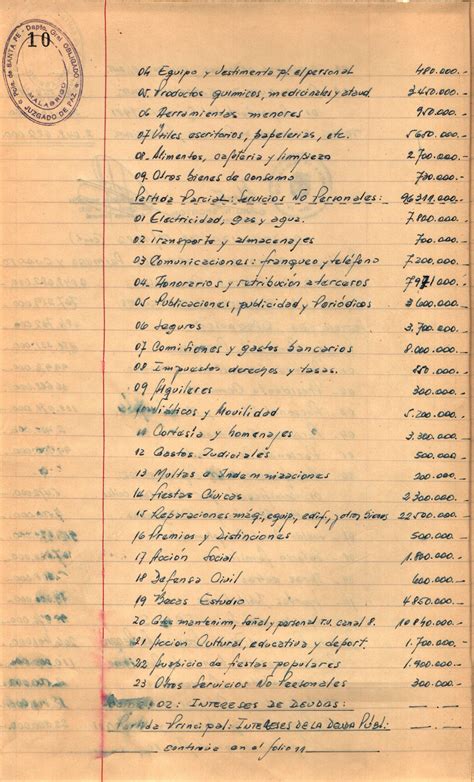 Pcia. de SANTA FE - Dapto. Gral. OBLIGADO
10
MALABRIGO
JUZGADO DE PAZ
04 Equipo y Vestimenta p/. el personal 480.000.-
05. Productos quimicos, medicinales y ataud. 3.450.000.-
06 Herramientas menores 950.000.-
07 Utiles, escritorios, papelerias, etc. 5.650.000.-
08. Alimentos, cafeteria y limpieza 2.700.000.-
09. Otros bienes de consumo 700.000.-
Partida Parcial: Servicios No Personales: 96.311.000.-
01 Electricidad, gas y agua. 7.800.000.-
02 Transporte y almacenajes 700.000.-
03 Comunicaciones: franqueo y teléfono 7.200.000.-
04. Honorarios y retribución a terceros 7.971.000.-
05 Publicaciones, publicidad y Periódicos 3.600.000.-
06 Seguros 3.700.000.-
07 Comisiones y gastos bancarios 8.000.000.-
08 Impuestos derechos y tasas. 250.000.-
09 Alquileres 300.000.-
10 Viáticos y Movilidad 5.200.000.-
11 Cortesía y homenajes 3.300.000.-
12 Gastos Judiciales 500.000.-
13 Multas e Indemnizaciones 200.000.-
14 Fiestas Cívicas 2.300.000.-
15 Reparaciones máq., equip., edif., y otros bienes 22.500.000.-
16 Premios y Distinciones 500.000.-
17 Acción Social 1.800.000.-
18 Defensa Civil 600.000.-
19 Becas Estudio 4.850.000.-
20 mantenim. señal y personal T.V. canal 8. 10.840.000.-
21 Acción Cultural, educativa y deport. 1.700.000.-
22 Auspicio de fiestas populares 1.900.000.-
23 Otros Servicios No Personales 300.000.-
02: INTERESES DE DEUDAS: —.—.-
Partida Principal: INTERESES DE LA DEUDA PÚBL: —.—.-
continúa en el folio 11